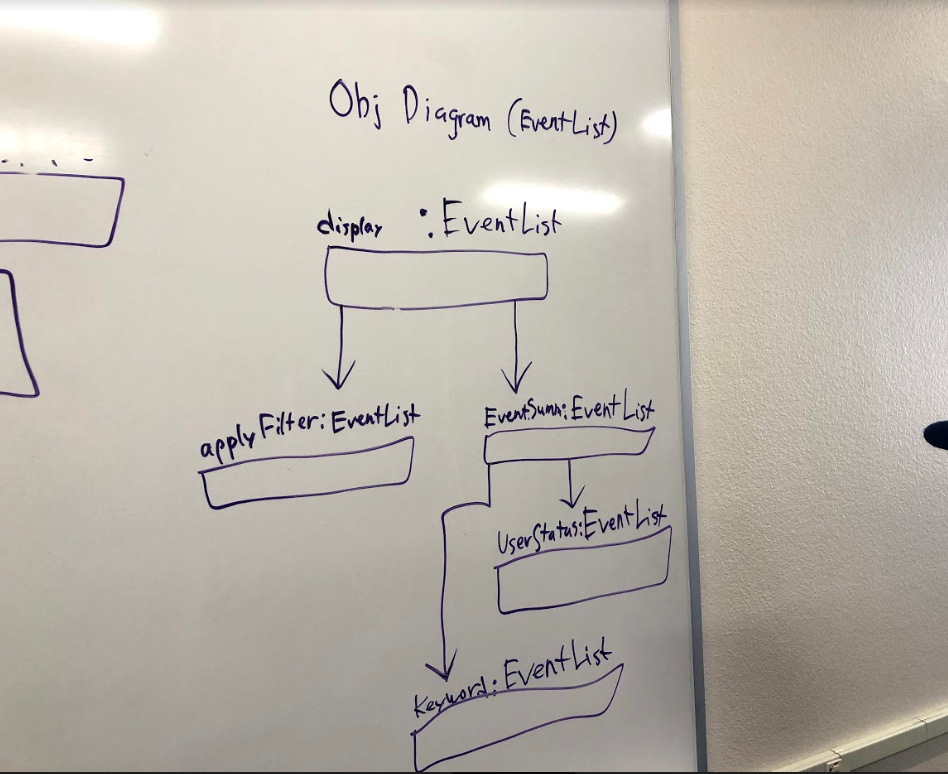 Obj Diagram (EventList)
display :EventList
applyFilter:EventList
EventSumm:EventList
UserStatus:EventList
Keyword:EventList